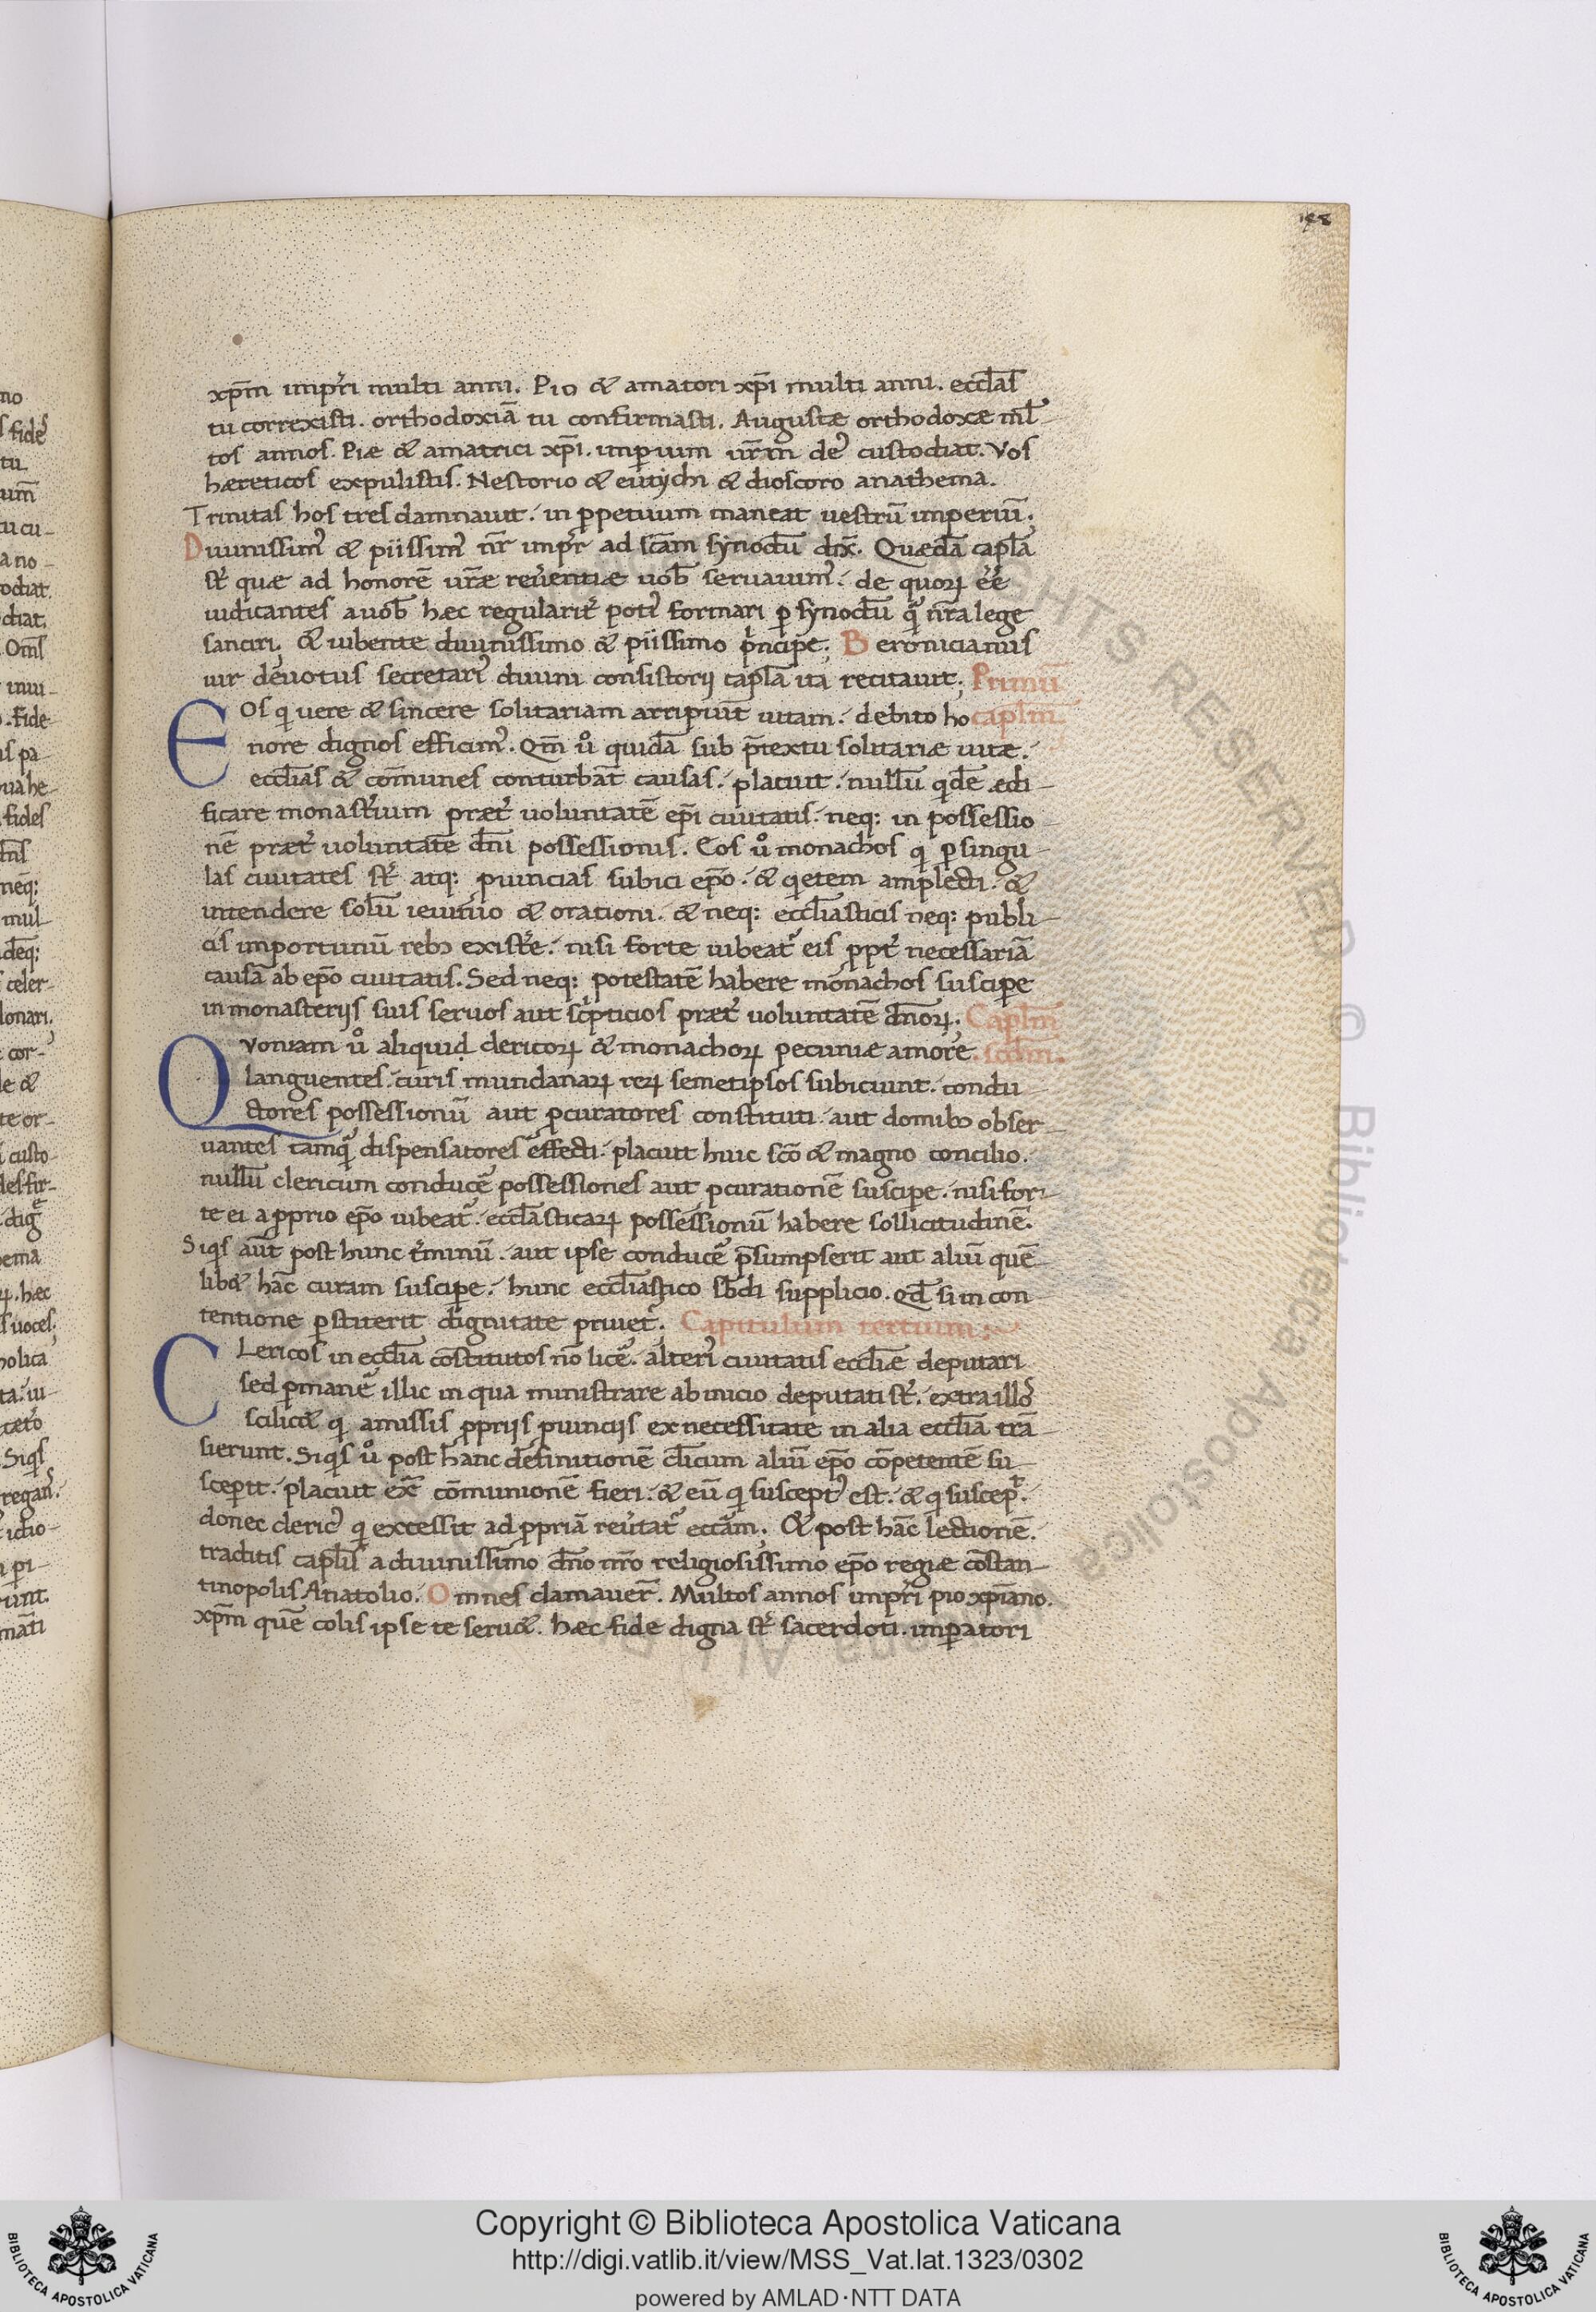 148
xp̄m imp̄ri multi anni. Pio & amatori xp̄i multi anni. ecclas̄
tu correxisti. orthodoxiā tu confirmasti. Augustæ orthodoxæ ml̄
tos annos. Piæ & amatrici xp̄i. imperium ur̄m de' custodiat. Vos
hæreticos expulistis. Nestorio & eutychi & dioscoro anathema.
Trinitas hos tres damnauit. in ꝑpetuum maneat uestrū imperiū;
Diuinissim' & piissim' nr̄ impr̄ ad sc̄am synodū dix̄. Quædā capl̄a
st̄ quæ ad honorē ur̄æ reuerentiæ uob̄ seruauim'. de quoꝝ ēē
iudicantes a uob̄ hæc regularit̄ poti' formari ꝑ synodū qͣ nr̄a lege
sanciri. & iubente diuinissimo & piissimo pͥncipe; Beronicianus
uir deuotus secretari' diuini consistorij capl̄a ita recitauit; Primū
Eos qͥ uere & sincere solitariam arripiunt uitam. debito ho capl̄m.
nore dignos efficim'. Qm̄ u̾ quidā sub p̄textu solitariæ uitæ.
eccl̄ias & com̄unes conturbāt causas. placuit. nullū qͥdē ædi-
ficare monasteriū præt̄ uoluntatē ep̄i ciuitatis. neq: in possessio-
nē præt̄ uoluntatē dn̄i possessionis. Eos u̾ monachos qͥ ꝑ singu-
las ciuitates st̄ atq: ꝓuincias subici ep̄o. & qͥetem amplecti. &
intendere solū ieiunio & orationi. & neq: eccl̄iasticis neq: publi-
cis importunū reb; existere. nisi forte iubeat̄ eis ꝓpt̄ necessariā
causā ab ep̄o ciuitatis. Sed neq: potestatē habere monachos suscipe
in monasterijs suis seruos aut scͥpticios præt̄ uoluntatē dn̄oꝝ. Capl̄m
Quoniam u̾ aliquid clericoꝝ & monachoꝝ pecuniæ amore. scd̄m.
languentes. curis mundanaꝝ reꝝ semetipsos subiciunt. condu-
ctores possessionū aut ꝓcuratores constituti. aut domib; obser-
uantes tamqͣ dispensatores effecti. placuit huic sc̄o & magno concilio.
nullū clericum conducē possessiones aut ꝓcurationē suscipe. nisi for-
te ei a ꝓprio ep̄o iubeat̄. eccl̄asticaꝝ possessionū habere sollicitudinē.
Siqͥs aūt post hunc t̄minū. aut ipse conducē p̄sumpserit aut aliū quē-
lib& hāc curam suscipe. hunc eccl̄iastico sb̄di supplicio. qd̄ si in con-
tentione ꝑstiterit dignitate priuet̄. Capitulum tertium;
Clericos in eccl̄ia cōstitutos nō licē. alteri' ciuitatis eccl̄iæ deputari
sed ꝑmanē illic in qua ministrare ab inicio deputati st̄. extra illos
scilic& qͥ amissis ꝓprijs ꝓuincijs ex necessitate in alia eccl̄iā trā-
sierunt. Siqͥs u̾ post hanc definitionē cl̄icum aliū ep̄o cōpetentē su-
sceperit. placuit ext̄ cōmunionē fieri. & eū qͥ suscept' est. & qͥ suscep̄.
donec cleric' qͥ excessit ad ꝓpriā reu̾tat̄ eccl̄am; Et post hāc lectionē.
traditis capl̄is a diuinissimo dn̄o nr̄o religiosissimo ep̄o regiæ cōstan-
tinopolis Anatolio. Omnes clamauer̄. Multos annos imp̄ri pio xp̄iano.
xp̄m quē colis ipse te seru&. hæc fide digna st̄ sacerdoti. imperatori
Copyright © Biblioteca Apostolica Vaticana
http://digi.vatlib.it/view/MSS_Vat.lat.1323/0302
powered by AMLAD·NTT DATA
BIBLIOTECA APOSTOLICA VATICANA
BIBLIOTECA APOSTOLICA VATICANA